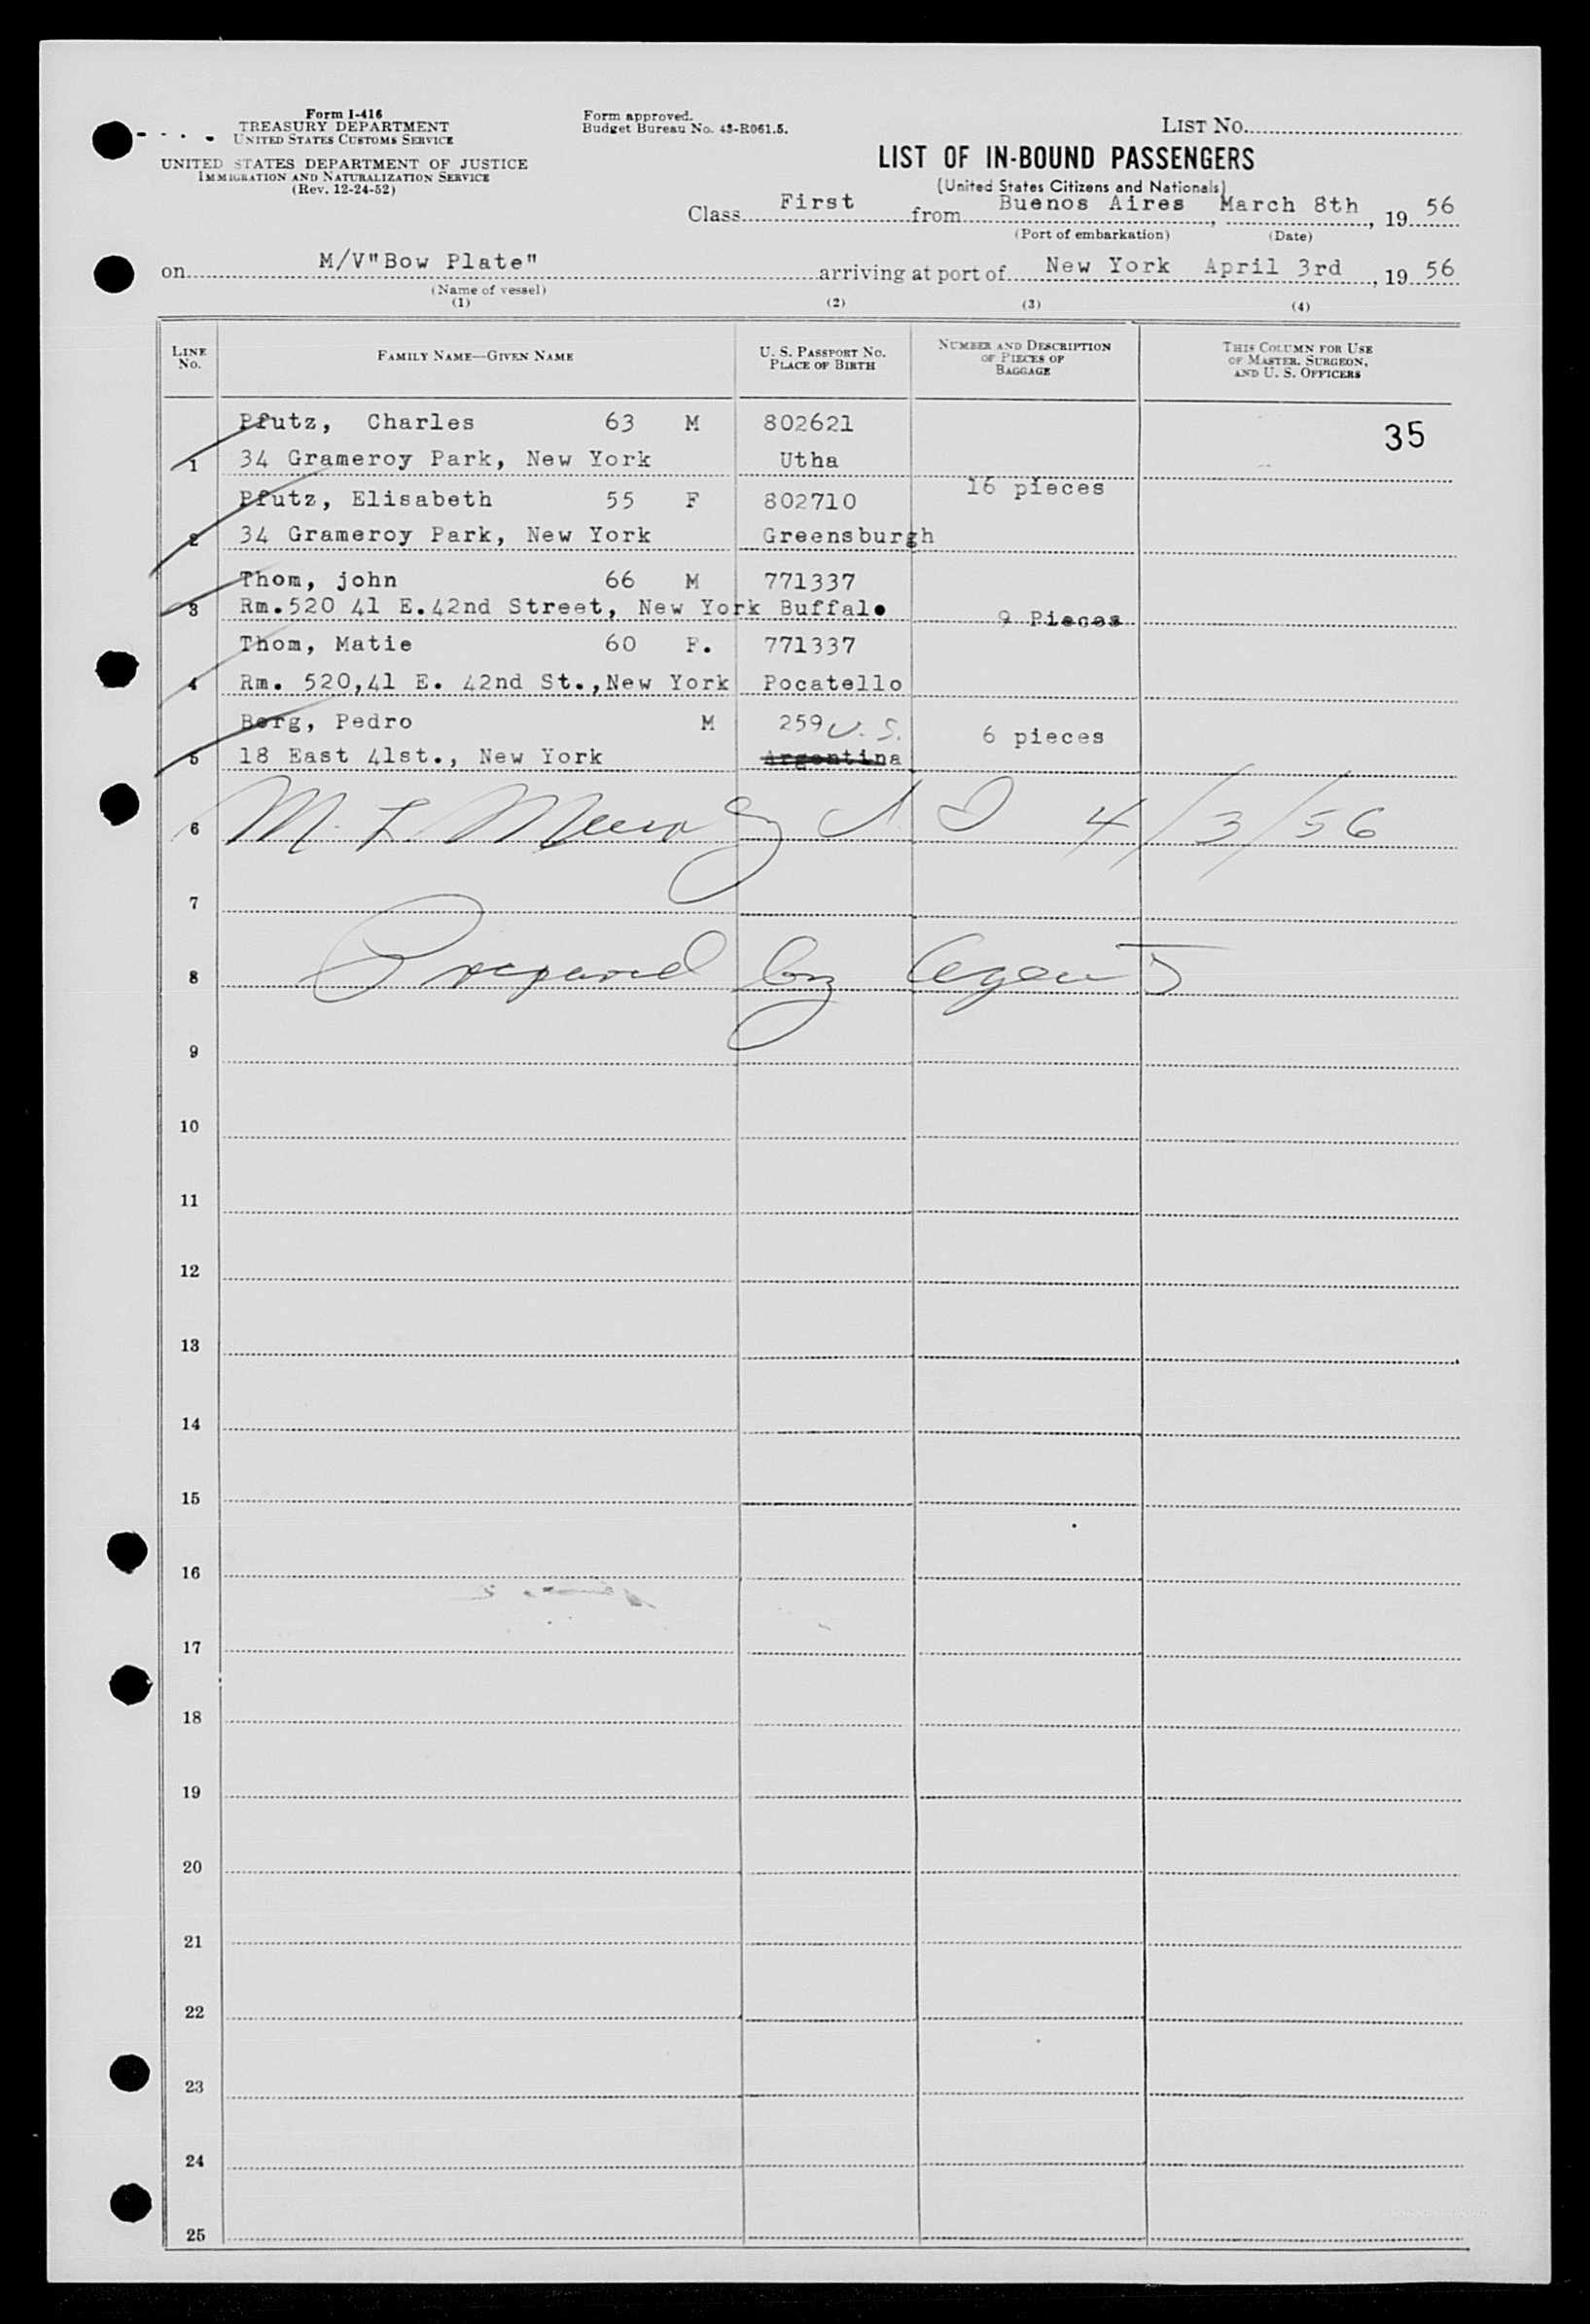 Form I-416
TREASURY DEPARTMENT
UNITED STATES CUSTOMS SERVICE
UNITED STATES DEPARTMENT OF JUSTICE
IMMIGRATION AND NATURALIZATION SERVICE
(Rev. 12-24-52)
Form approved.
Budget Bureau No. 43-R061.5.
LIST NO.
LIST OF IN-BOUND PASSENGERS
(United States Citizens and Nationals)
Class First from Buenos Aires, March 8th, 1956
(Port of embarkation) (Date)
on M/V"Bow Plate" arriving at port of New York April 3rd, 1956
(Name of vessel)
(1) (2) (3) (4)
LINE NO. FAMILY NAME—GIVEN NAME U. S. PASSPORT NO. PLACE OF BIRTH NUMBER AND DESCRIPTION OF PIECES OF BAGGAGE THIS COLUMN FOR USE OF MASTER, SURGEON, AND U. S. OFFICERS
Pfutz, Charles 63 M 802621 35
1 34 Grameroy Park, New York Utha
16 pieces
Pfutz, Elisabeth 55 F 802710
2 34 Grameroy Park, New York Greensburgh
Thom, john 66 M 771337
3 Rm.520 41 E.42nd Street, New York Buffalo 9 Pieces
Thom, Matie 60 F. 771337
4 Rm. 520,41 E. 42nd St.,New York Pocatello
Berg, Pedro M 259 U.S. 6 pieces
5 18 East 41st., New York Argentina
6 M. L. 4/3/56
7
8 Prepared by Agent
9
10
11
12
13
14
15
16
17
18
19
20
21
22
23
24
25